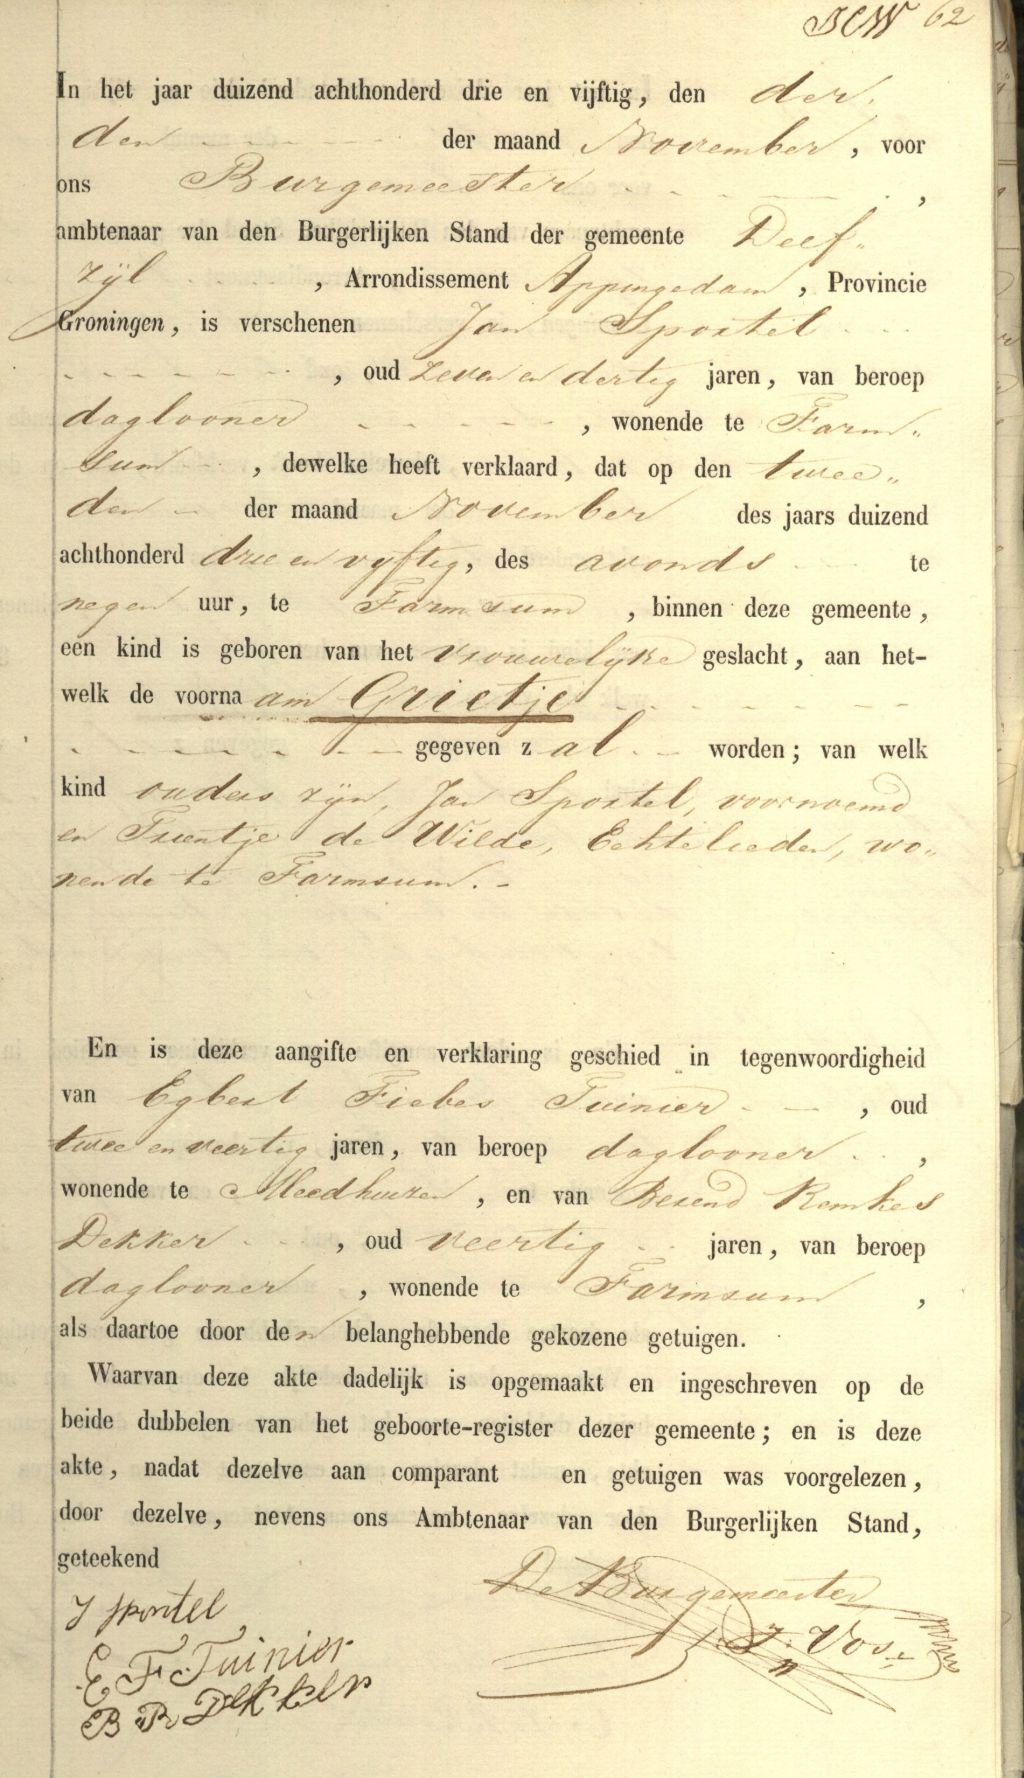 62
In het jaar duizend achthonderd drie en vijftig, den der
den der maand November, voor
ons Burgemeester,
ambtenaar van den Burgerlijken Stand der gemeente Delf-
zijl, Arrondissement Appingedam, Provincie
Groningen, is verschenen Jan Sportel
, oud zeven en dertig jaren, van beroep
daglooner, wonende te Farm-
sum, dewelke heeft verklaard, dat op den twee-
den der maand November des jaars duizend
achthonderd drie en vyftig, des avonds te
negen uur, te Farmsum, binnen deze gemeente,
een kind is geboren van het vrouwelijke geslacht, aan het-
welk de voornaam Grietje
gegeven zal worden; van welk
kind ouders zijn, Jan Sportel, voornoemd
en Trientje de Wilde, Echtelieden, wo-
nende te Farmsum.
En is deze aangifte en verklaring geschied in tegenwoordigheid
van Egbert Fiebes Tuinier, oud
twee en veertig jaren, van beroep daglooner,
wonende te Meedhuizen, en van Berend Remkes
Dekker, oud veertig jaren, van beroep
daglooner, wonende te Farmsum,
als daartoe door den belanghebbende gekozene getuigen.
Waarvan deze akte dadelijk is opgemaakt en ingeschreven op de
beide dubbelen van het geboorte-register dezer gemeente; en is deze
akte, nadat dezelve aan comparant en getuigen was voorgelezen,
door dezelve, nevens ons Ambtenaar van den Burgerlijken Stand,
geteekend
De Burgemeester
J Sportel
J. Vos
E F Tuinier
B R Dekker